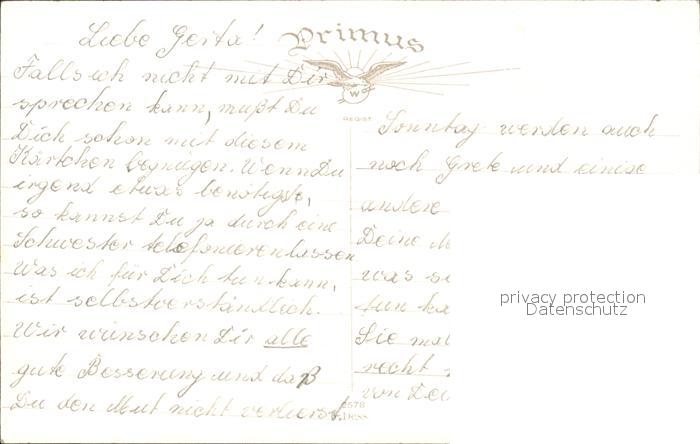 Liebe Gerta!
Primus
Falls ich nicht mit Dir
sprechen kann, mußt Du
Dich schon mit diesem
Kärtchen begnügen. Wenn Du
irgend etwas benötigst,
so kannst Du ja durch eine
Schwester telefonieren lassen
Was ich für Dich tun kann,
ist selbstverständlich.
Wir wünschen Dir alle
gute Besserung und daß
Du den Mut nicht verlierst.
Sonntag werden auch
noch Grete und einige
andere
Deine
was
tun
Sie
recht
von
privacy protection
Datenschutz